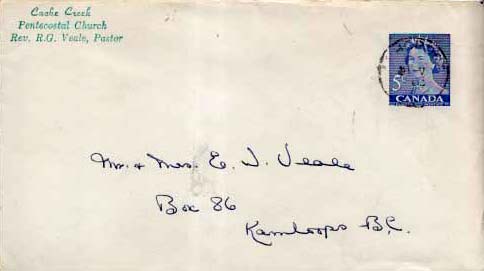 Cache Creek
Pentecostal Church
Rev. R.G. Veale, Pastor
5
CANADA
Mr. & Mrs. E. W. Veale
Box 86
Kamloops B.C.